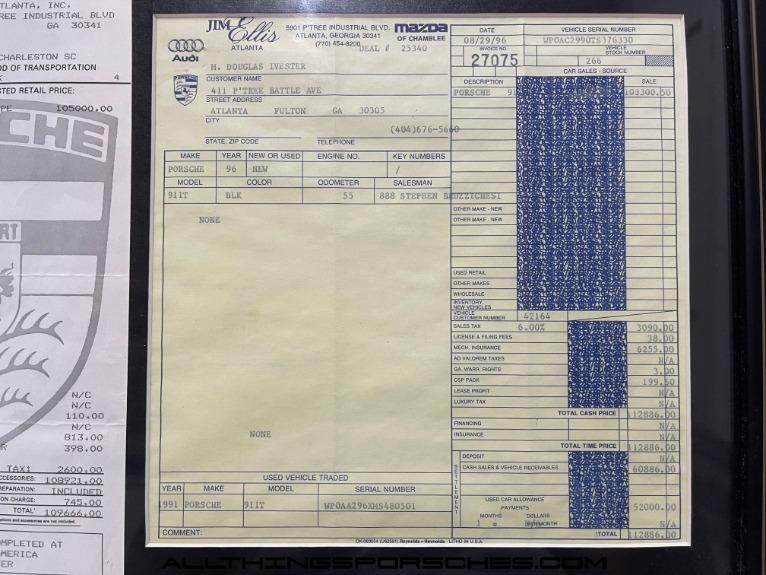 TLANTA, INC.
TREE INDUSTRIAL BLVD
GA 30341
CHARLESTON SC
OD OF TRANSPORTATION
K 4
STED RETAIL PRICE:
PE 105000.00
SCHE
RT
N/C
N/C
110.00
N/C
813.00
R 398.00
TAX1 2600.00
CCESSORIES: 108921.00
REPARATION: INCLUDED
ON CHARGE: 745.00
TOTAL* 109666.00
options and accessories are not included.
COMPLETED AT
AMERICA
TER
JIM Ellis
ATLANTA
Audi
5901 P'TREE INDUSTRIAL BLVD.
ATLANTA, GEORGIA 30341
(770) 454-8200
DEAL # 25340
mazda
OF CHAMBLEE
M. DOUGLAS IVESTER
CUSTOMER NAME
411 P'TREE BATTLE AVE
STREET ADDRESS
ATLANTA FULTON GA 30305
CITY
(404)676-5660
STATE, ZIP CODE TELEPHONE
MAKE YEAR NEW OR USED ENGINE NO. KEY NUMBERS
PORSCHE 96 NEW /
MODEL COLOR ODOMETER SALESMAN
911T BLK 55 888 STEPHEN BUZZICHESI
NONE
NONE
USED VEHICLE TRADED
YEAR MAKE MODEL SERIAL NUMBER
1991 PORSCHE 911T WP0AA296XMS480501
COMMENT:
DATE VEHICLE SERIAL NUMBER
08/29/96 WP0AC2990TS376330
INVOICE NO. VEHICLE STOCK NUMBER
27075 Z66
CAR SALES - SOURCE
DESCRIPTION SALE
PORSCHE 91 103300.50
OTHER MAKE - NEW
OTHER MAKE - NEW
USED RETAIL
OTHER MAKES
WHOLESALE
INVENTORY
NEW VEHICLES
VEHICLE
CUSTOMER NUMBER 42164
SALES TAX 6.00% 3090.00
LICENSE & FILING FEES 38.00
MECH. INSURANCE 6255.00
AD VALOREM TAXES N/A
GA. WARR. RIGHTS 3.00
CSP PACK 199.50
LEASE PROFIT N/A
LUXURY TAX N/A
TOTAL CASH PRICE 112886.00
FINANCING N/A
INSURANCE N/A
TOTAL TIME PRICE 112886.00
SETTLEMENT
DEPOSIT N/A
CASH SALES & VEHICLE RECEIVABLES 60886.00
USED CAR ALLOWANCE 52000.00
PAYMENTS
MONTHS DOLLARS
MONTH N/A
TOTAL 112886.00
Reynolds + Reynolds LITHO IN U.S.A.
ALLTHINGSPORSCHES.COM